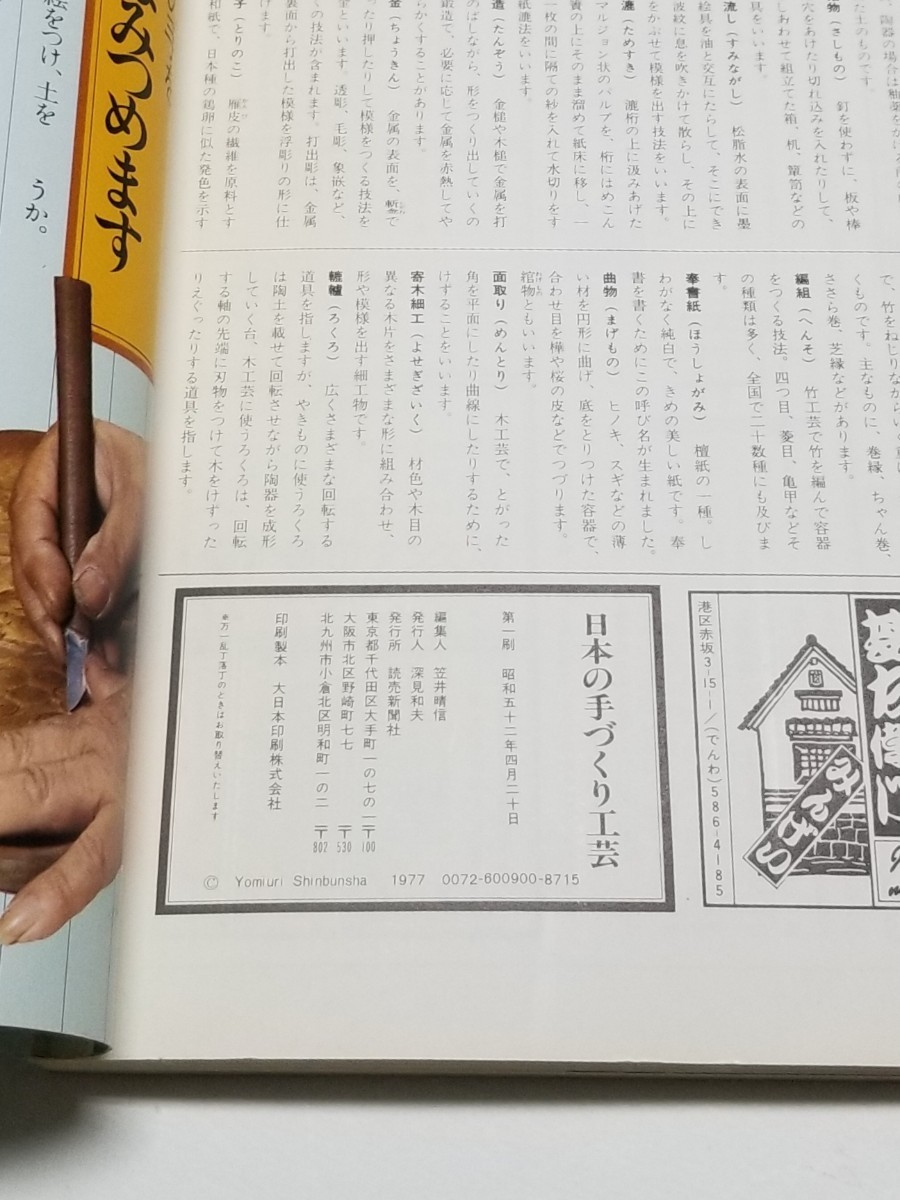 みつめます
絵をつけ、土を
うか。
物(さしもの) 釘を使わずに、板や棒
穴をあけたり切れ込みを入れたりして、
しあわせて組立てた箱、机、簞笥などの
具をいいます。
流し(すみながし) 松脂水の表面に墨
絵具を油と交互にたらして、そこにでき
波紋に息を吹きかけて散らし、その上に
をかぶせて模様を出す技法をいいます。
漉(ためすき) 漉桁の上に汲みあげた
マルジョン状のパルプを、桁にはめこん
簀の上にそのまま溜めて紙床に移し、一
一枚の間に隔ての紗を入れて水切りをす
紙漉法をいいます。
造(たんぞう) 金槌や木槌で金属を打
のばしながら、形をつくり出していくの
鍛造で、必要に応じて金属を赤熱してや
らかくすることがあります。
金(ちょうきん) 金属の表面を、鏨で
ったり押したりして模様をつくる技法を
金といいます。透彫、毛彫、象嵌など、
くの技法が含まれます。打出彫は、金属
裏面から打出した模様を浮彫りの形に仕
げます。
子(とりのこ) 雁皮の繊維を原料とす
和紙で、日本種の鶏卵に似た発色を示す
くものです。主なものに、巻縁、ちゃん巻、
ささら巻、芝縁などがあります。
編組(へんそ) 竹工芸で竹を編んで容器
をつくる技法。四つ目、菱目、亀甲などそ
の種類は多く、全国で二十数種にも及びま
す。
奉書紙(ほうしょがみ) 檀紙の一種。し
わがなく純白で、きめの美しい紙です。奉
書を書くためにこの呼び名が生まれました。
曲物(まげもの) ヒノキ、スギなどの薄
い材を円形に曲げ、底をとりつけた容器で、
合わせ目を樺や桜の皮などでつづります。
綰物ともいいます。
面取り(めんとり) 木工芸で、とがった
角を平面にしたり曲線にしたりするために、
けずることをいいます。
寄木細工(よせぎざいく) 材色や木目の
異なる木片をさまざまな形に組み合わせ、
形や模様を出す細工物です。
轆轤(ろくろ) 広くさまざまな回転する
道具を指しますが、やきものに使うろくろ
は陶土を載せて回転させながら陶器を成形
していく台、木工芸に使うろくろは、回転
する軸の先端に刃物をつけて木をけずった
りえぐったりする道具を指します。
港区赤坂3-15-1/(でんわ)586-4185
みんげい
日本の手づくり工芸
第一刷 昭和五十二年四月二十日
編集人 笠井晴信
発行人 深見和夫
発行所 読売新聞社
東京都千代田区大手町一の七の一 〒100
大阪市北区野崎町七七 〒530
北九州市小倉北区明和町一の二 〒802
印刷製本 大日本印刷株式会社
※万一乱丁落丁のときはお取り替えいたします
© Yomiuri Shinbunsha 1977 0072-600900-8715